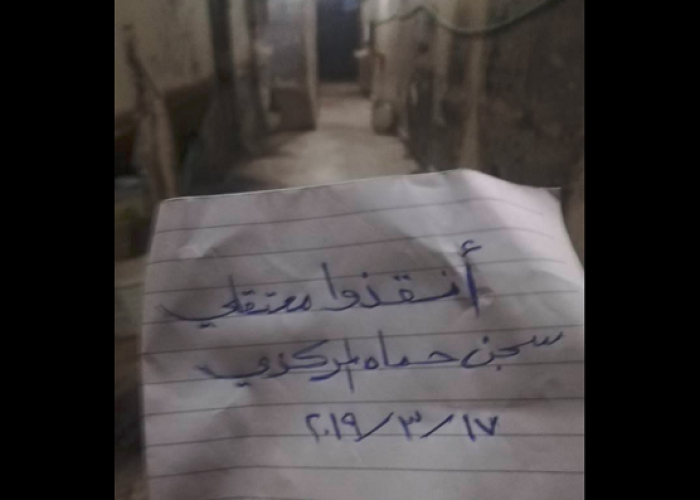 أنقذوا معتقلي
سجن حماه المركزي
١٧/٣/٢٠١٩